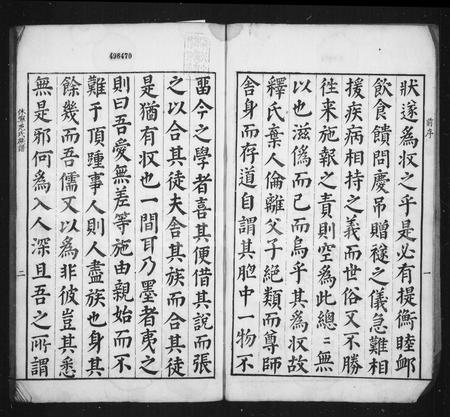 498470
前序
一
狀遂爲収之乎是必有提衡睦䘏
飲食饋問慶弔贈禭之儀急難相
援疾病相持之義而世俗又不勝
徃来施報之責則空爲此總〻無
以也滋僞而已而烏乎其爲収故
釋氏棄人倫離父子絕類而尊師
舍身而存道自謂其胞中一物不
畱今之學者喜其便借其說而張
之以合其徒夫合其族而合其徒
是猶有収也一間耳乃墨者夷之
則曰吾愛無差等施由親始而不
難于頂踵事人則人盡族也身其
餘幾而吾儒又以爲非彼豈其悉
無是邪何爲入人深且吾之所謂
休寧范氏族譜
二